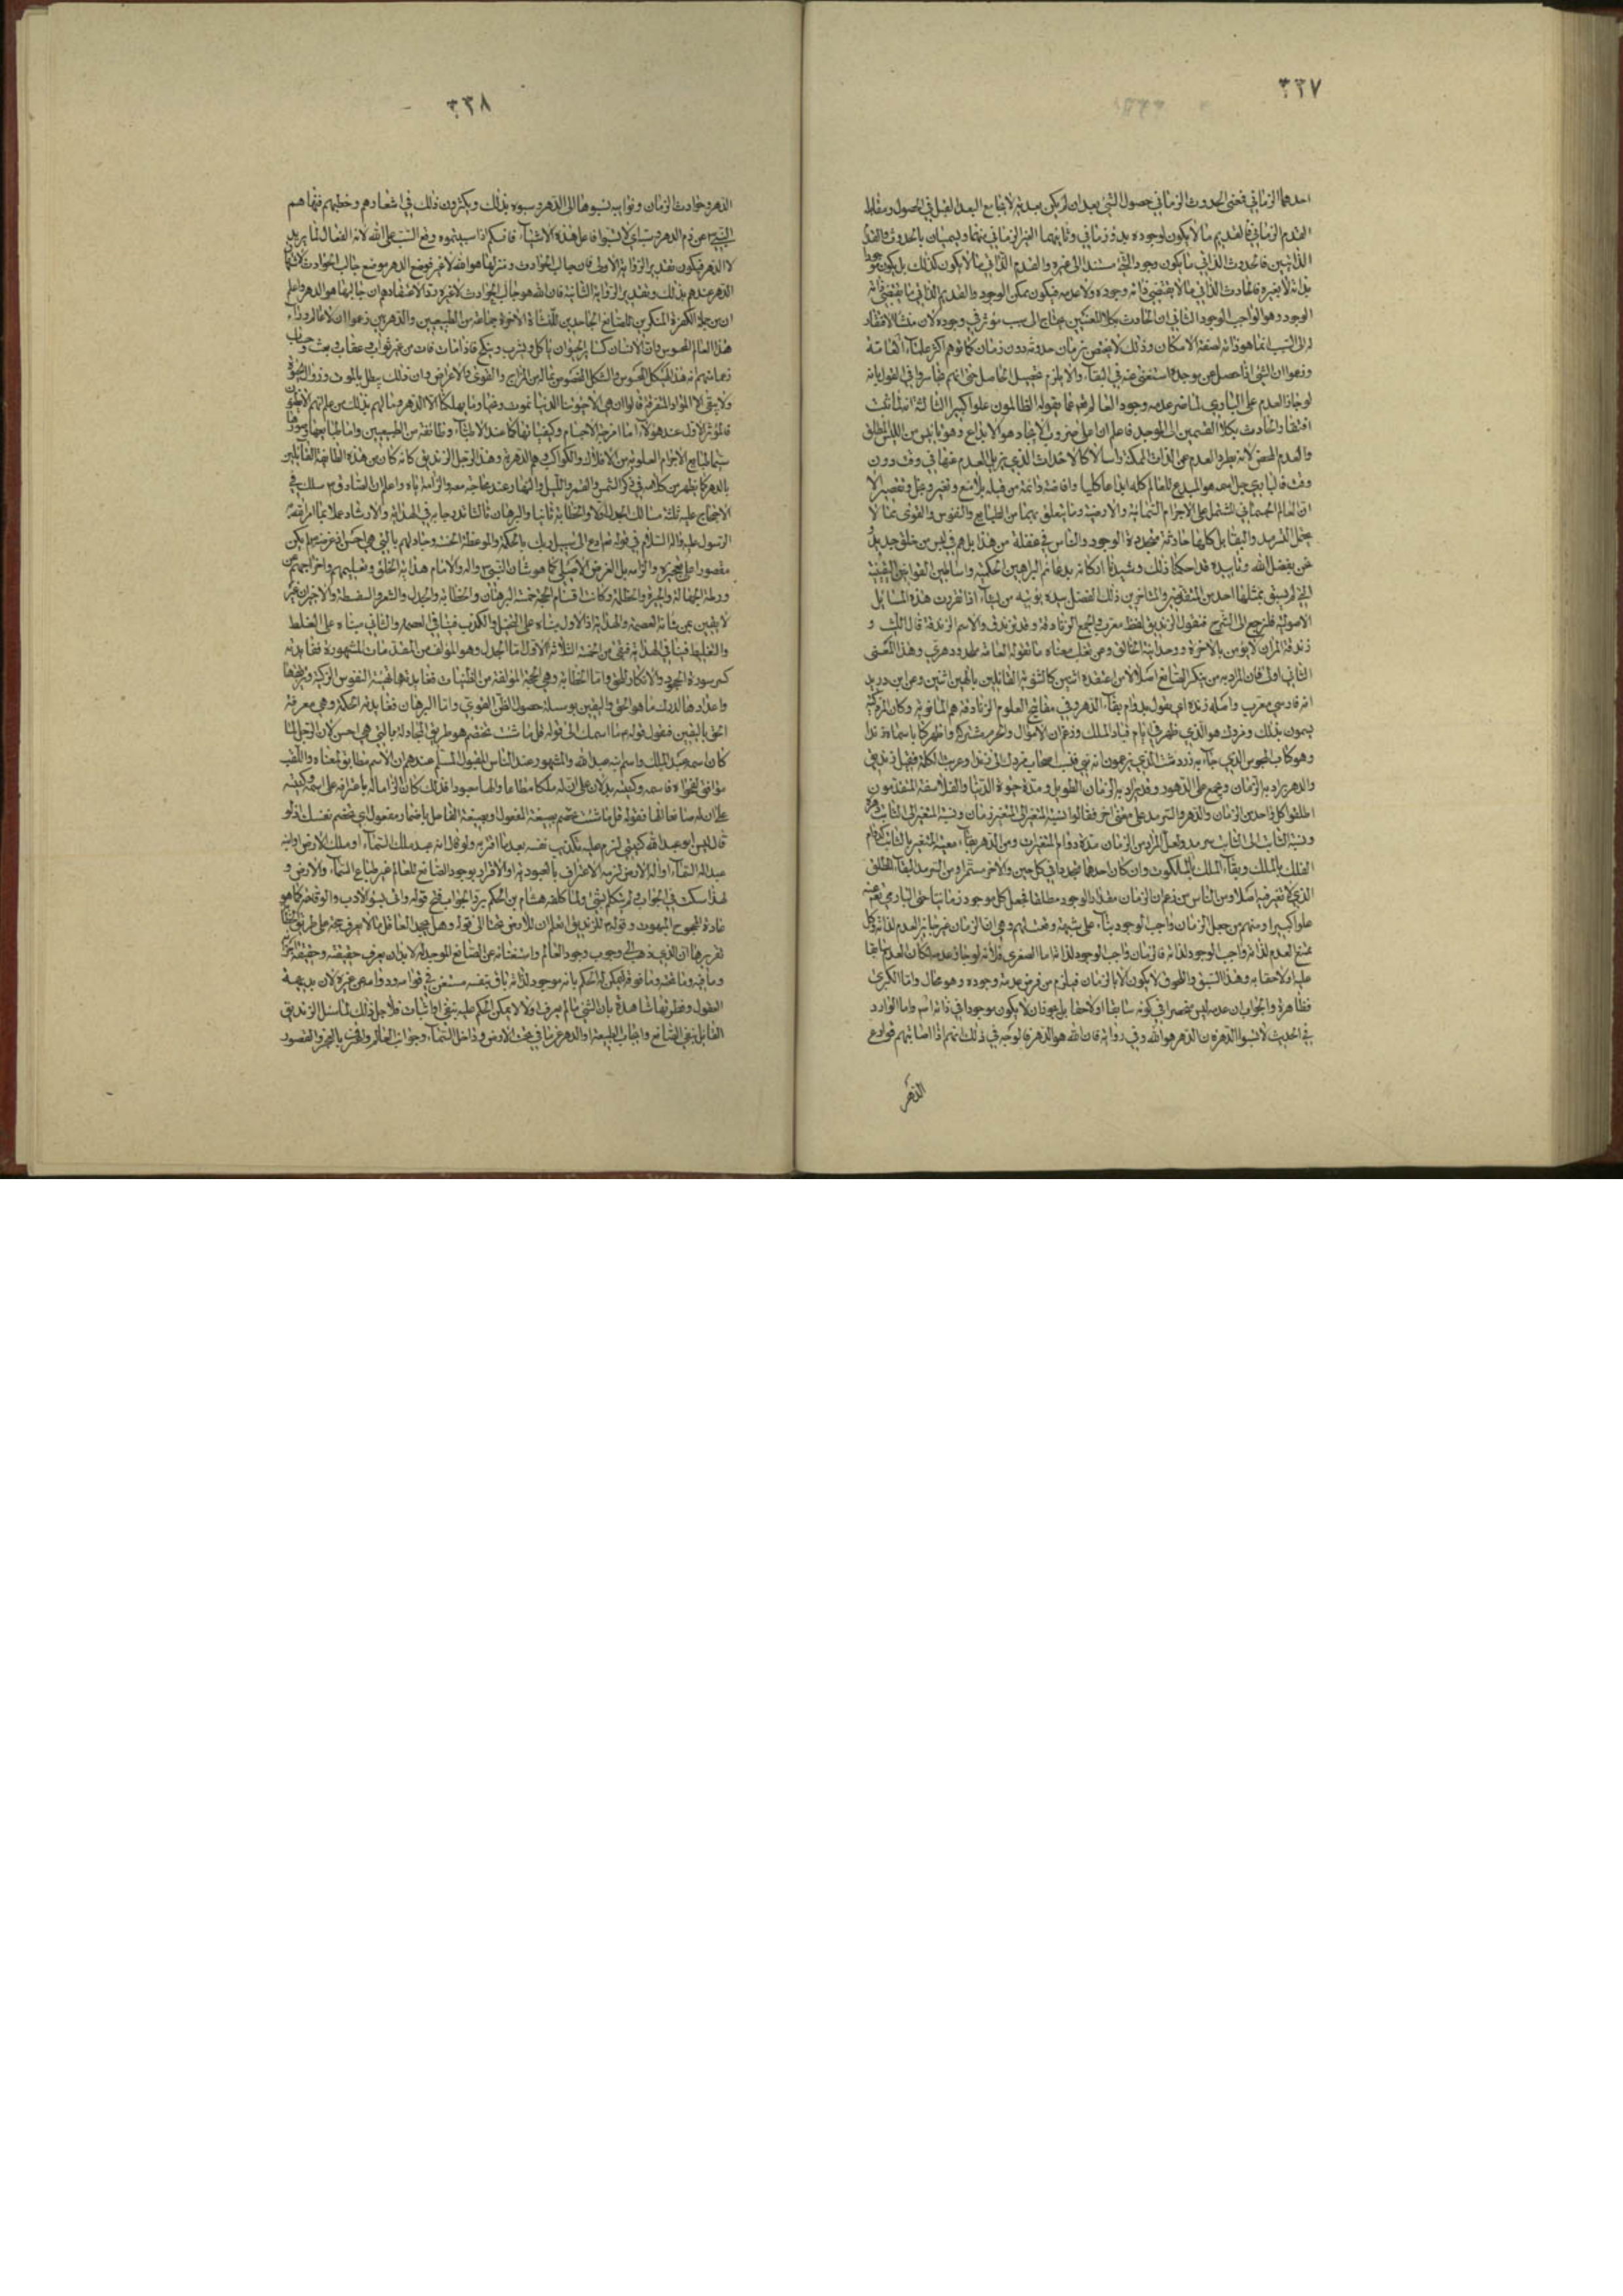 ٣٣٧
احدهما الزماني فمعنى الحدوث الزماني حصول الشئ بعد ان لم يكن بعدية لا يجامع البعد القبل في الحصول ومقابله
القدم الزماني فالقديم ما لا يكون لوجوده بدؤ زماني وثانيهما الغير الزماني منهما ويسميان بالحدوث والقدم
الذاتيين فالحدوث الذاتي ما يكون وجود الشئ مستندا الى غيره والقدم الذاتي ما لا يكون كذلك بل يكون موجودا
بذاته لا بغيره فالحادث الذاتي ما لا يقتضي ذاته وجوده ولا عدمه فيكون ممكن الوجود والقديم الذاتي ما يقتضي ذاته
الوجود وهو الواجب الوجود الثاني ان الحادث بكلا المعنيين يحتاج الى سبب مؤثر في وجوده لان منشا الافتقار
له الى السبب انما هو ذاته لصفة الامكان وذلك لا يختص بزمان حدوثه دون زمان كما توهم اكثر علماء العامة
وزعموا ان الشئ اذا حصل من موجده استغنى عنه في البقاء والا يلزم تحصيل الحاصل حتى انهم تجاسروا في القول بانه
لو جاز العدم على الباري لما ضر عدمه وجود العالم تع عما يقوله الظالمون علوا كبيرا الثالث انه لما ثبت
افتقار الحادث بكلا القسمين الى الموجد فاعلم ان اعلى ضروب الايجاد هو الابداع وهو تاييس من الليس المطلق
والعدم المحض لانه يطرد العدم عن الذات الممكنة راسا لا كالاحداث الذي يزيل العدم عنها في وقت دون
وقت فالباري جل اسمه هو المبدع للعالم كله ابداعا كليا وافاضة دائمة من قبله بلا منع وتغير وبخل وتقصير الا
ان العالم الجسماني المشتمل على الاجرام السماوية والارضية وما يتعلق بهما من الطبايع والنفوس والقوى مما لا
يحتمل التسرمد والبقا بل كلها حادثة متجددة الوجود والناس في غفلة من هذا بل هم في لبس من خلق جديد بل
نحن بفضل الله وتاييده قد احكمنا ذلك وشيدنا اركانه بدعائم البراهين الحكمية واساطين القوانين اليقينية
التي لم يسبق بمثلها احد من المتقدمين والمتاخرين ذلك الفضل بيده يؤتيه من يشاء اذا تقررت هذه المسائل
الاصولية فلنرجع الى الشرح فنقول الزنديق لفظ معرب والجمع الزنادقة وقد تزندق والاسم الزندقة قال الليث و
زندقة المران لا يؤمن بالآخرة ووحدانية الخالق وعن ثعلب معناه ما تقوله العامة ملحد ودهري وهذا المعنى
الثاني اولى فان المراد به من ينكر الصانع اصلا لا من اعتقده اثنين كالثنوية القائلين بالهين اثنين وعن ابن دريد
انه فارسي معرب واصله زنده اي يقول بدوام بقاء الدهر وفي مفاتيح العلوم الزنادقة هم المانوية وكان المزدكية
يسمون بذلك ومزدك هو الذي ظهر في ايام قباد الملك وزعم ان الاموال والحرم مشتركة واظهر كتابا سماه زندا
وهو كتاب المجوس الذي جاء به زردشت الذي يزعمون انه نبي فنسب اصحاب مزدك الى زند وعربت الكلمة فقيل زنديق
والدهر يراد به الزمان ويجمع على الدهور وقد يراد به الزمان الطويل ومدة حيوة الدنيا والفلاسفة المتقدمون
اطلقوا كل واحد من الزمان والدهر والسرمد على معنى اخر فقالوا نسبة المتغير الى المتغير زمان ونسبة المتغير الى الثابت دهر
ونسبة الثابت الى الثابت سرمد ولعل المراد من الزمان مدة دوام المتغيرات ومن الدهر بقاء معية المتغير بالثابت كدوام
الفلك بالملك وبقاء الملك بالملكوت وان كان احدهما يتجدد في كل حين والآخر مستمرا ومن السرمد البقاء المطلق
الذي لا تغير فيه اصلا ومن الناس من زعم ان الزمان مقدار الوجود مطلقا فجعل كل موجود زمانيا حتى الباري تع عنه
علوا كبيرا ومنهم من جعل الزمان واجب الوجود بناء على شبهة وقعت لهم وهي ان الزمان غير جايز العدم لذاته وكل
ممتنع العدم لذاته واجب الوجود لذاته فالزمان واجب الوجود لذاته اما الصغرى فلانه لو جاز عدمه لكان العدم سابقا
عليه او لاحقا به وهذا السبق واللحوق لا يكون الا بالزمان فيلزم من فرض عدمه وجوده وهو محال واما الكبرى
فظاهرة والجواب ان عدمه ليس منحصرا في كونه سابقا او لاحقا بل يجوز ان لا يكون موجودا في ذاته راسا واما الوارد
في الحديث لا تسبوا الدهر فان الدهر هو الله وفي رواية فان الله هو الدهر فالوجه في ذلك انهم اذا اصابتهم قوارع
الدهر
٣٣٨
الدهر وحوادث الزمان ونوائبه نسبوها الى الدهر وسبوه بذلك ويكثرون ذلك في اشعارهم وخطبهم فنهاهم
النبي ص عن ذم الدهر وسبه اي لا تسبوا فاعل هذه الاشياء فانكم اذا سببتموه وقع السب على الله لانه الفعال لما يريد
لا الدهر فيكون تقدير الرواية الاولى فان جالب الحوادث ومنزلها هو الله لا غير فوضع الدهر موضع جالب الحوادث لاشتهار
الدهر عندهم بذلك وتقدير الرواية الثانية فان الله هو جالب الحوادث لا غيره ردا لاعتقادهم ان جالبها هو الدهر واعلم
ان من جملة الكفرة المنكرين للصانع الجاحدين للنشاة الآخرة جماعة من الطبيعيين والدهريين زعموا ان لا عالم وراء
هذا العالم المحسوس وان الانسان كسائر الحيوان ياكل ويشرب وينكح فاذا مات فات من غير ثواب وعقاب وبعث وحساب
زعما منهم انه هذا الهيكل المحسوس والشكل المخصوص بماله من المزاج والقوى والاعراض وان ذلك يبطل بالموت وزوال الحيوة
ولا يبقى الا المواد المتفرقة قالوا ان هي الا حيوتنا الدنيا نموت ونحيا وما يهلكنا الا الدهر وما لهم بذلك من علم ان هم الا يظنون
فالمؤثر الاول عند هؤلاء اما امزجة الاجسام وكيفياتها كما عند الاطباء وطائفة من الطبيعيين واما طبايعها وصورها
سيما طبايع الاجرام العلوية من الافلاك والكواكب وهم الدهرية وهذا الرجل الزنديق كانه كان من هذه الطائفة القائلين
بالدهر كما يظهر من كلامه في ذكر الشمس والقمر والليل والنهار وعند محاجته معه والزامه اياه واعلم ان الصادق ع سلك في
الاحتجاج عليه ثلثة مسالك الجدل اولا والخطابة ثانيا والبرهان ثالثا تدرجا به في الهداية والارشاد عملا بما امر الله
الرسول عليه واله السلام في قوله تعالى ادع الى سبيل ربك بالحكمة والموعظة الحسنة وجادلهم بالتي هي احسن اذ غرضه ع لم يكن
مقصورا على تعجيزه والزامه بل الغرض الاصلي كما هو شان النبي ص واله والامام هداية الخلق وتعليمهم واخراجهم من
ورطة الجهالة والحيرة والضلالة وكانت اقسام الحجة خمسة البرهان والخطابة والجدل والشعر والسفسطة والاخيران غير
لايقين بمن شانه العصمة والهداية اذ الاول بناءه على التخيل والكذب فينافي العصمة والثاني مبناه على الغلط
والتغليط فينافي الهداية فبقي من الخمسة الثلاثة الاول اما الجدل وهو المؤلف من المقدمات المشهورة ففايدته
كسر سورة الجحود والانكار للحق واما الخطابة وهي الحجة المؤلفة من الظنيات ففايدتها تهيئة النفوس الزكية وتشويقها
واعدادها لدرك ما هو الحق واليقين بوسيلة حصول الظن القوي واما البرهان ففايدته الحكمة وهي معرفة
الحق باليقين فنقول قوله ع ما اسمك الى قوله قل ما شئت تخصم هو طريق المجادلة بالتي هي احسن لان الرجل لما
كان اسمه عبد الملك واسم ابنه عبد الله والمشهور عند الناس المقبول المسلم عندهم ان الاسم مطابق لمعناه واللقب
موافق لفحواه فاسمه وكنيته يدلان على ان له ملكا مطاعا والها معبودا فذلك كان الزاما له باعترافه على اسمه وكنيته
على ان له صانعا الها فقوله قل ما شئت تخصم بصيغة المفعول او بصيغة الفاعل باضمار مفعول اي تخصم نفسك اذ لو
قال ليس ابو عبد الله كنيتي لزم عليه تكذيب نفسه بعد ما اقر به ولو قال انه عبد ملك السماء او ملك الارض او ابنه
عبد اله السماء او اله الارض لزمه الاعتراف بالعبودية والاقرار بوجود الصانع للعالم غير طبايع السماء والارض و
لهذا سكت في الجواب ولم يتكلم بشئ ولما كلفه هشام بن الحكم برد الجواب قبح قوله واتى بسوء الادب والوقاحة كما هو
عادة المحجوج المبهوت وقوله ع للزنديق اتعلم ان للارض تحتا الى قوله وهل يجحد العاقل ما لا يعرف حجة على طريق الخطابة
تقريرها ان الذي يذهب الى وجوب وجود العالم واستغنائه عن الصانع الموجد له لا بد ان يعرف حقيقته وحقيقة اجزائه
وما فيه وما تحته وما فوقه ليمكن له الحكم بانه موجود لذاته باق بنفسه مستغن في قوامه ودوامه عن غيره لان بديهة
العقول وفطرتها شاهدة بان الشئ ما لم يعرف اولا لا يمكن الحكم عليه بنفي او اثبات فلاجل ذلك لما سئل الزنديق
القائل بنفي الصانع وايجاب الطبيعة او الدهر عما في تحت الارض وداخل السماء وجوانب العالم والشرق والغرب والمقصود